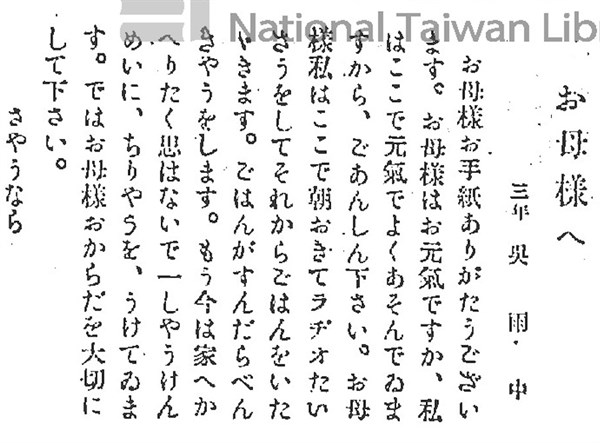 National Taiwan Libr
お母様へ
三年 吳 雨 中
お母様お手紙ありがたうござい
ます。お母様はお元氣ですか、私
はここで元氣でよくあそんでゐま
すから、ごあんしん下さい。お母
様私はここで朝おきてラヂオたい
さうをしてそれからごはんをいた
ゞきます。ごはんがすんだらべん
きやうをします。もう今は家へか
へりたく思はないで一しやうけん
めいに、ちりやうを、うけてゐま
す。ではお母様おからだを大切に
して下さい。
さやうなら